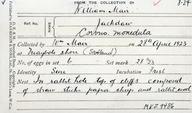 FROM THE COLLECTION OF
William Mair
8.24
Jackdaw
Corvus monedula
Collected by Wm Mair on 28th April 1923
at (Scotland)
No. of eggs in set 6 Set mark 28/23
Identity Seen Incubation Fresh
Nest In rabbit hole top of cliffs composed
of straw sticks paper sheep and rabbit